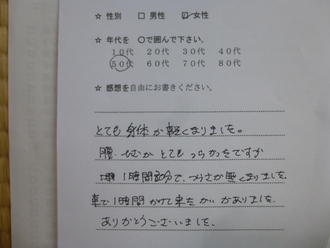 ☆ 性別 □ 男性 ☑ 女性
☆ 年代を 〇で囲んで下さい。
10代 20代 30代 40代
50代 60代 70代 80代
☆ 感想を自由にお書きください。
とても身体が軽くなりました。
腰、ひざがとてもつらかったですが
1時間で、つらさが無くなりました。
車で1時間かけて来たかいがありました。
ありがとうございました。